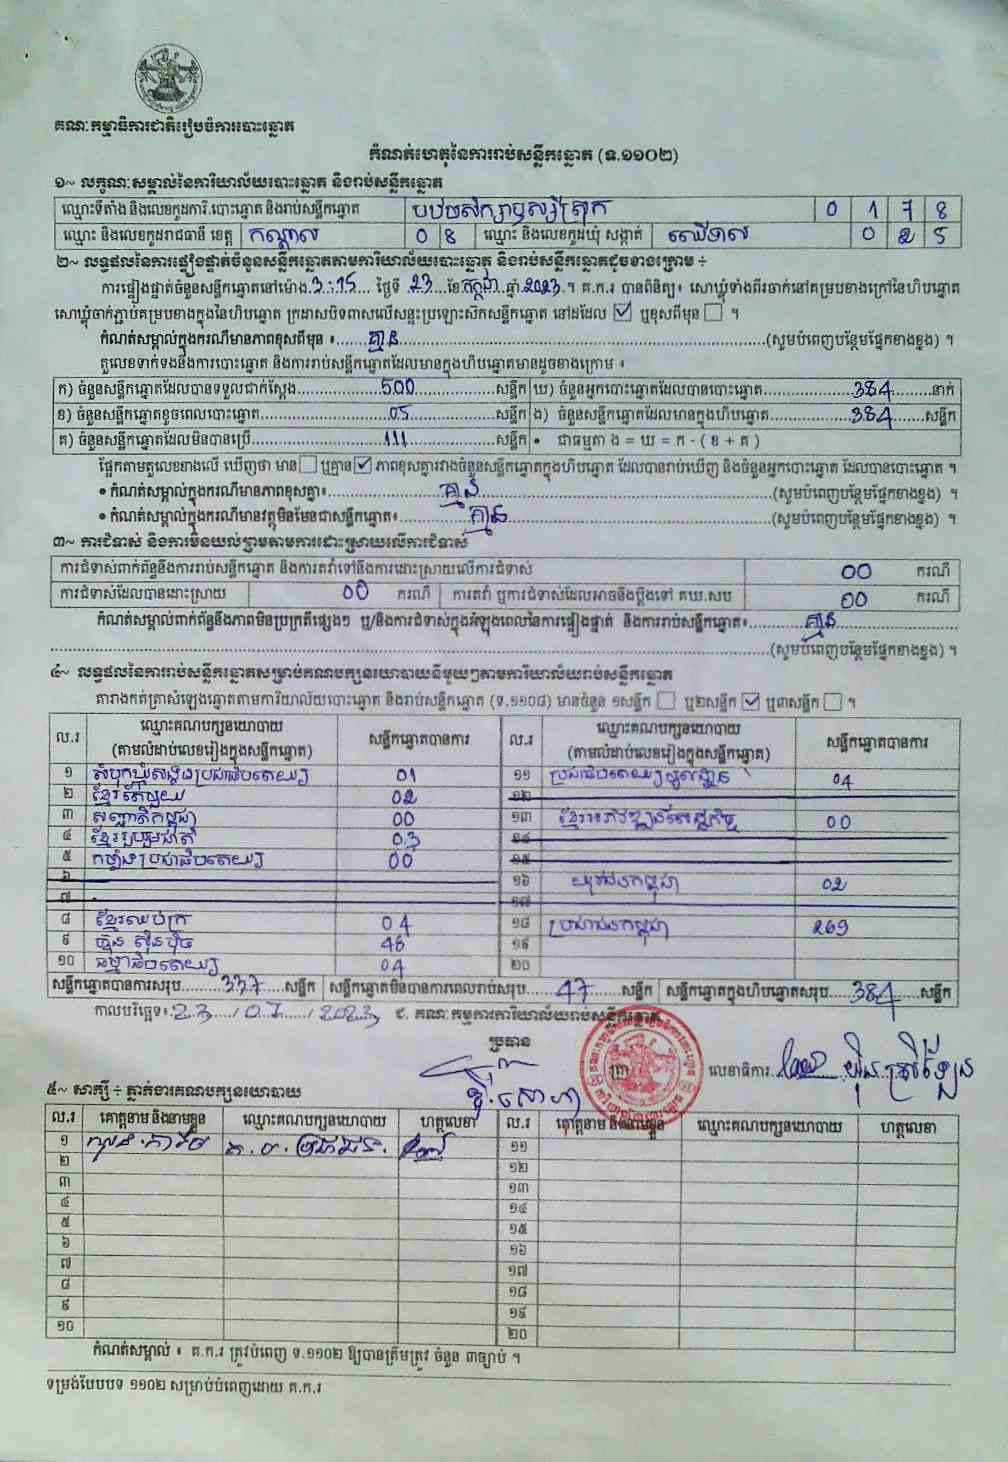 គណៈកម្មាធិការជាតិរៀបចំការបោះឆ្នោត
កំណត់ហេតុនៃការរាប់សន្លឹកឆ្នោត (ទ.១១០២)
១~ លក្ខណៈសម្គាល់នៃការិយាល័យបោះឆ្នោត និងរាប់សន្លឹកឆ្នោត
ឈ្មោះទីតាំង និងលេខកូដការិ.បោះឆ្នោត និងរាប់សន្លឹកឆ្នោត បឋមសិក្សាឫស្សីស្រុក 0 1 7 8
ឈ្មោះ និងលេខកូដរាជធានី ខេត្ត កណ្តាល 0 8 ឈ្មោះ និងលេខកូដឃុំ សង្កាត់ ឈើទាល 0 2 5
២~ លទ្ធផលនៃការផ្ទៀងផ្ទាត់ចំនួនសន្លឹកឆ្នោតតាមការិយាល័យបោះឆ្នោត និងរាប់សន្លឹកឆ្នោតដូចខាងក្រោម ÷
ការផ្ទៀងផ្ទាត់ចំនួនសន្លឹកឆ្នោតនៅម៉ោង 3:15 ថ្ងៃទី 23 ខែ កក្កដា ឆ្នាំ 2023 ។ គ.ក.រ បានពិនិត្យ៖ សោឃ្មុំទាំងពីរចាក់នៅគម្របខាងក្រៅនៃហិបឆ្នោត
សោឃ្មុំចាក់ភ្ជាប់គម្របខាងក្នុងនៃហិបឆ្នោត ក្រដាសបិទពាសលើសន្ទះប្រឡោះសឹកសន្លឹកឆ្នោត នៅដដែល ☑ ឬខុសពីមុន ☐ ។
កំណត់សម្គាល់ក្នុងករណីមានភាពខុសពីមុន ៖ គ្មាន (សូមបំពេញបន្ថែមផ្នែកខាងខ្នង) ។
តួលេខទាក់ទងនឹងការបោះឆ្នោត និងការរាប់សន្លឹកឆ្នោតដែលមានក្នុងហិបឆ្នោតមានដូចខាងក្រោម ៖
ក) ចំនួនសន្លឹកឆ្នោតដែលបានទទួលជាក់ស្តែង 500 សន្លឹក ឃ) ចំនួនអ្នកបោះឆ្នោតដែលបានបោះឆ្នោត 384 នាក់
ខ) ចំនួនសន្លឹកឆ្នោតខូចពេលបោះឆ្នោត 05 សន្លឹក ង) ចំនួនសន្លឹកឆ្នោតដែលមានក្នុងហិបឆ្នោត 384 សន្លឹក
គ) ចំនួនសន្លឹកឆ្នោតដែលមិនបានប្រើ 111 សន្លឹក • ជាធម្មតា ង = ឃ = ក - ( ខ + គ )
ផ្អែកតាមតួលេខខាងលើ ឃើញថា មាន ☐ ឬគ្មាន ☑ ភាពខុសគ្នារវាងចំនួនសន្លឹកឆ្នោតក្នុងហិបឆ្នោត ដែលបានរាប់ឃើញ និងចំនួនអ្នកបោះឆ្នោត ដែលបានបោះឆ្នោត ។
• កំណត់សម្គាល់ក្នុងករណីមានភាពខុសគ្នា៖ គ្មាន (សូមបំពេញបន្ថែមផ្នែកខាងខ្នង) ។
• កំណត់សម្គាល់ក្នុងករណីមានវត្ថុមិនមែនជាសន្លឹកឆ្នោត៖ គ្មាន (សូមបំពេញបន្ថែមផ្នែកខាងខ្នង) ។
៣~ ការជំទាស់ និងការមិនយល់ព្រមតាមការដោះស្រាយលើការជំទាស់
ការជំទាស់ពាក់ព័ន្ធនឹងការរាប់សន្លឹកឆ្នោត និងការតវ៉ាទៅនឹងការដោះស្រាយលើការជំទាស់ 00 ករណី
ការជំទាស់ដែលបានដោះស្រាយ 00 ករណី ការតវ៉ា ឬការជំទាស់ដែលអាចនឹងប្តឹងទៅ គឃ.សប 00 ករណី
កំណត់សម្គាល់ពាក់ព័ន្ធនឹងភាពមិនប្រក្រតីផ្សេងៗ ឬ/និងការជំទាស់ក្នុងអំឡុងពេលនៃការផ្ទៀងផ្ទាត់ និងការរាប់សន្លឹកឆ្នោត៖ គ្មាន
(សូមបំពេញបន្ថែមផ្នែកខាងខ្នង) ។
៤~ លទ្ធផលនៃការរាប់សន្លឹកឆ្នោតសម្រាប់គណបក្សនយោបាយនីមួយៗតាមការិយាល័យរាប់សន្លឹកឆ្នោត
តារាងកត់ត្រាសំឡេងឆ្នោតតាមការិយាល័យបោះឆ្នោត និងរាប់សន្លឹកឆ្នោត (ទ.១១០៨) មានចំនួន ១សន្លឹក ☐ ឬ២សន្លឹក ☑ ឬ៣សន្លឹក ☐ ។
ល.រ ឈ្មោះគណបក្សនយោបាយ (តាមលំដាប់លេខរៀងក្នុងសន្លឹកឆ្នោត) សន្លឹកឆ្នោតបានការ ល.រ ឈ្មោះគណបក្សនយោបាយ (តាមលំដាប់លេខរៀងក្នុងសន្លឹកឆ្នោត) សន្លឹកឆ្នោតបានការ
១ សំបុកឃ្មុំសង្គមប្រជាធិបតេយ្យ 01 ១១ ប្រជាធិបតេយ្យមូលដ្ឋាន 04
២ ខ្មែរតែមួយ 02 ១២
៣ សញ្ជាតិកម្ពុជា 00 ១៣ ខ្មែរអភិវឌ្ឍន៍សេដ្ឋកិច្ច 00
៤ ខ្មែររួបរួមជាតិ 03 ១៤
៥ កម្លាំងប្រជាធិបតេយ្យ 00 ១៥
៦ ១៦ យុវជនកម្ពុជា 02
៧ ១៧
៨ ខ្មែរឈប់ក្រ 04 ១៨ ប្រជាជនកម្ពុជា 269
៩ ហ៊្វុនស៊ិនប៉ិច 48 ១៩
១០ ធម្មាធិបតេយ្យ 04 ២០
សន្លឹកឆ្នោតបានការសរុប 337 សន្លឹក សន្លឹកឆ្នោតមិនបានការពេលរាប់សរុប 47 សន្លឹក សន្លឹកឆ្នោតក្នុងហិបឆ្នោតសរុប 384 សន្លឹក
កាលបរិច្ឆេទ៖ 23 / 07 / 2023 ជ. គណៈកម្មការការិយាល័យរាប់សន្លឹកឆ្នោត
ប្រធាន
លេខាធិការ
៥~ សាក្សី ÷ ភ្នាក់ងារគណបក្សនយោបាយ
ល.រ គោត្តនាម និងនាមខ្លួន ឈ្មោះគណបក្សនយោបាយ ហត្ថលេខា ល.រ គោត្តនាម និងនាមខ្លួន ឈ្មោះគណបក្សនយោបាយ ហត្ថលេខា
១ ១១
២ ១២
៣ ១៣
៤ ១៤
៥ ១៥
៦ ១៦
៧ ១៧
៨ ១៨
៩ ១៩
១០ ២០
កំណត់សម្គាល់ ៖ គ.ក.រ ត្រូវបំពេញ ទ.១១០២ ឱ្យបានត្រឹមត្រូវ ចំនួន ៣ច្បាប់ ។
ទម្រង់បែបបទ ១១០២ សម្រាប់បំពេញដោយ គ.ក.រ